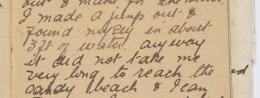 out & make for the shore.
I made a jump out &
found myself in about
3ft of water anyway
it did not take me
very long to reach the
sandy beach & I can